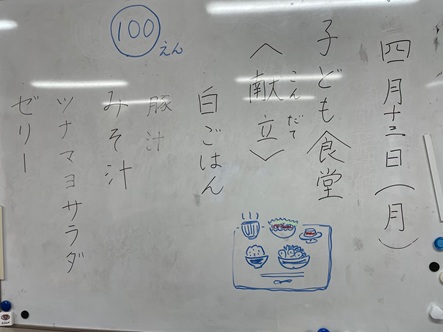 四月十三日(月)
子ども食堂
〈献立〉
こんだて
白ごはん
豚汁
みそ汁
ツナマヨサラダ
ゼリー
100えん